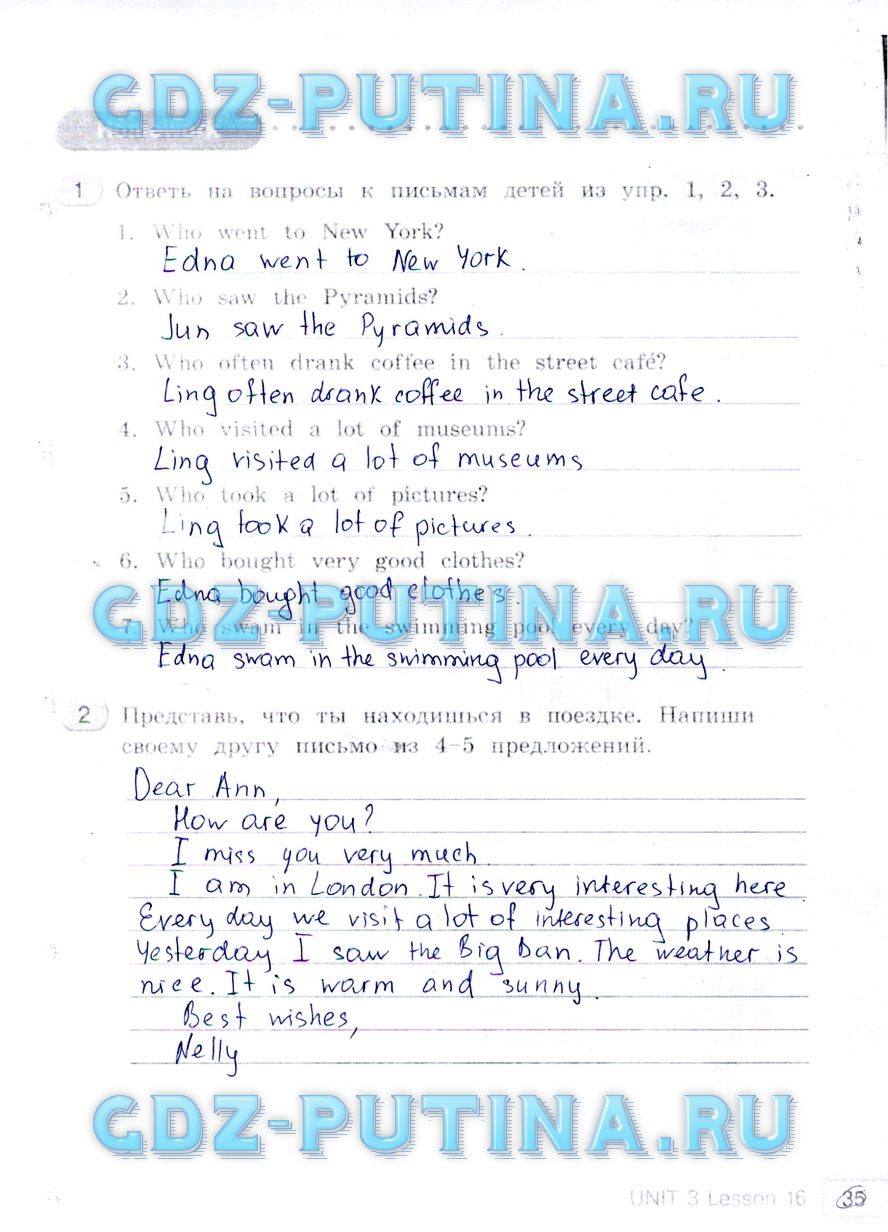 GDZ-PUTINA.RU
1 Ответь на вопросы к письмам детей из упр. 1, 2, 3.
1. Who went to New York?
Edna went to New York.
2. Who saw the Pyramids?
Jun saw the Pyramids.
3. Who often drank coffee in the street café?
Ling often drank coffee in the street cafe.
4. Who visited a lot of museums?
Ling visited a lot of museums
5. Who took a lot of pictures?
Ling took a lot of pictures.
6. Who bought very good clothes?
Edna bought good clothes.
GDZ-PUTINA.RU
7. Who swam in the swimming pool every day?
Edna swam in the swimming pool every day.
2 Представь, что ты находишься в поездке. Напиши
своему другу письмо из 4–5 предложений.
Dear Ann,
How are you?
I miss you very much.
I am in London. It is very interesting here.
Every day we visit a lot of interesting places.
Yesterday I saw the Big Ban. The weather is
nice. It is warm and sunny.
Best wishes,
Nelly
GDZ-PUTINA.RU
UNIT 3 Lesson 16 35